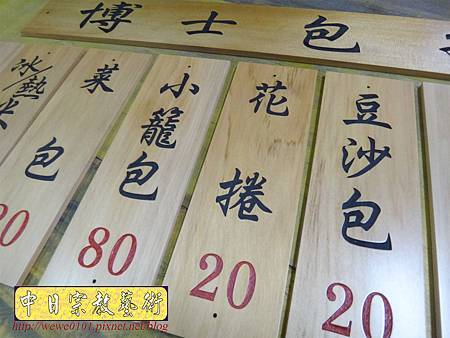 博士包
冰熱米
20
菜包
小籠包
80
花捲
20
豆沙包
20
中日宗教藝術
http://wewe0101.pixnet.net/blog